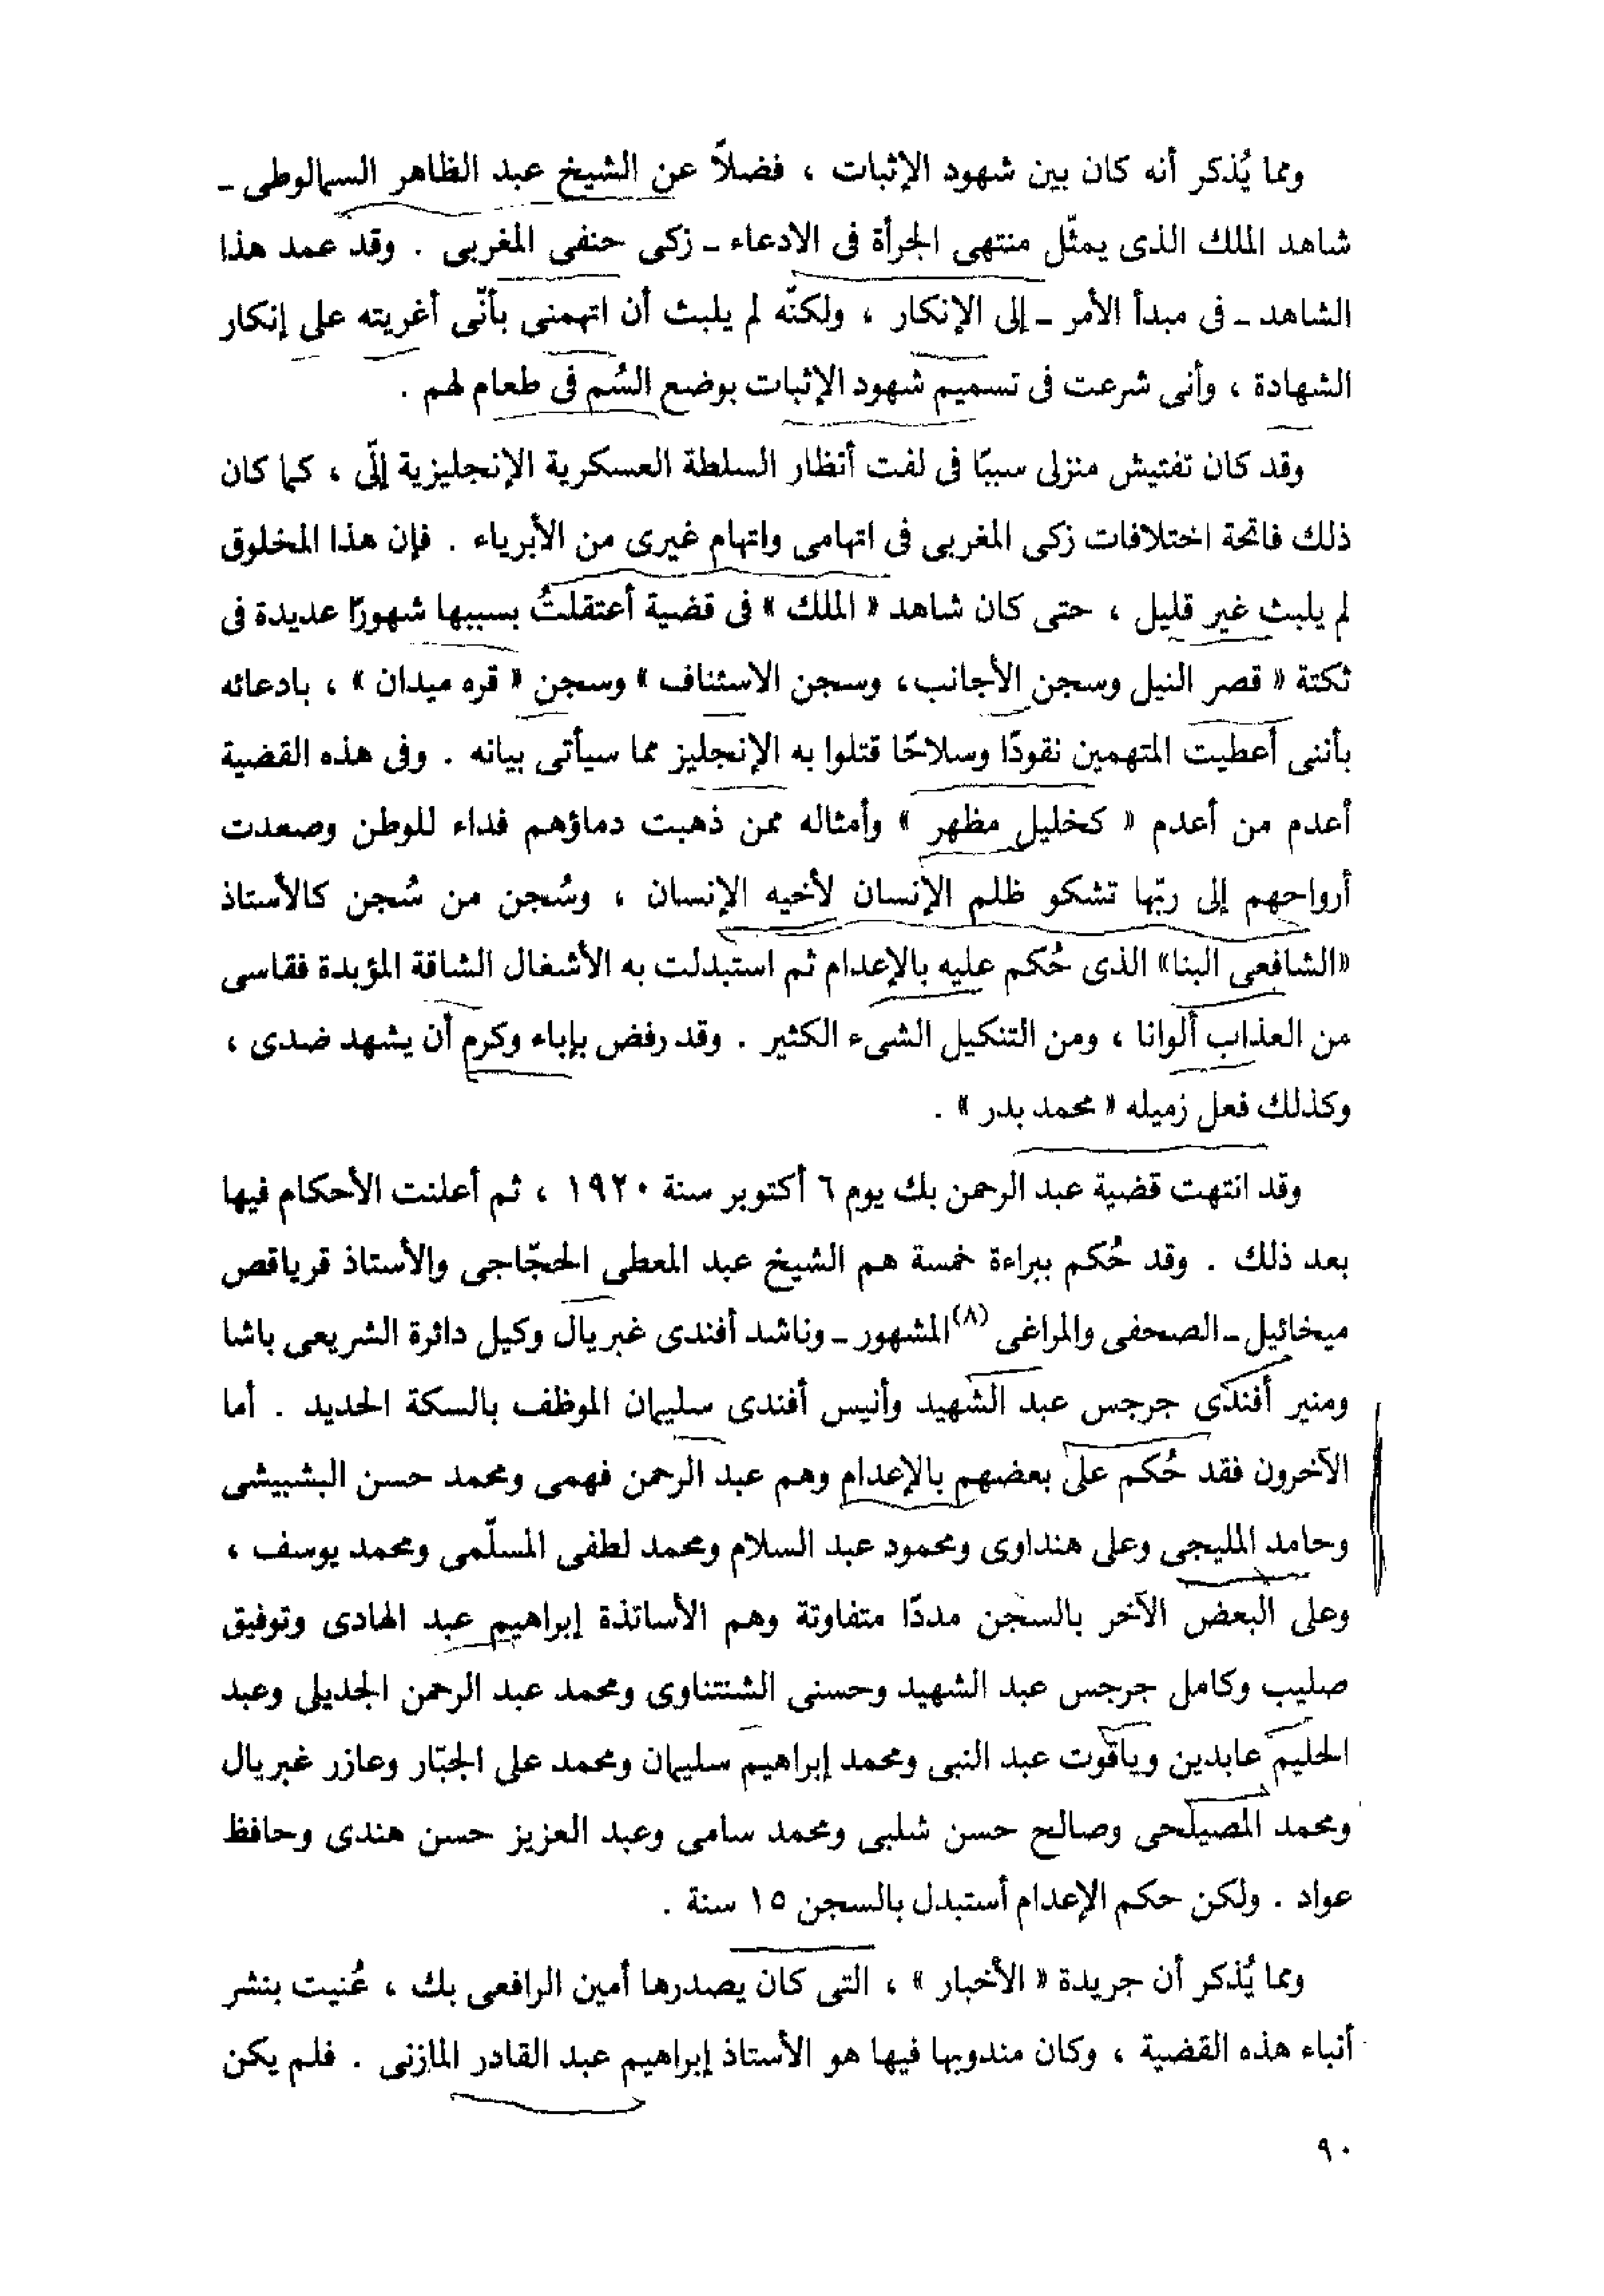 ومما يُذكر أنه كان بين شهود الإثبات ، فضلاً عن الشيخ عبد الظاهر السمالوطى ـ
شاهد الملك الذى يمثّل منتهى الجرأة فى الادعاء ـ زكى حنفى المغربى . وقد عمد هذا
الشاهد ـ فى مبدأ الأمر ـ إلى الإنكار ، ولكنّه لم يلبث أن اتهمنى بأنّى أغريته على إنكار
الشهادة ، وأنى شرعت فى تسميم شهود الإثبات بوضع السُم فى طعام لهم .
وقد كان تفتيش منزلى سببًا فى لفت أنظار السلطة العسكرية الإنجليزية إلّى ، كما كان
ذلك فاتحة اختلافات زكى المغربى فى اتهامى واتهام غيرى من الأبرياء . فإن هذا المخلوق
لم يلبث غير قليل ، حتى كان شاهد « الملك » فى قضية أعتقلتُ بسببها شهورًا عديدة فى
ثكنة « قصر النيل وسجن الأجانب، وسجن الاستئناف » وسجن « قره ميدان » ، بادعائه
بأننى أعطيت المتهمين نقودًا وسلاحًا قتلوا به الإنجليز مما سيأتى بيانه . وفى هذه القضية
أعدم من أعدم « كخليل مظهر » وأمثاله ممن ذهبت دماؤهم فداء للوطن وصعدت
أرواحهم إلى ربّها تشكو ظلم الإنسان لأخيه الإنسان ، وسُجن من سُجن كالأستاذ
«الشافعى البنا» الذى حُكم عليه بالإعدام ثم استبدلت به الأشغال الشاقة المؤبدة فقاسى
من العذاب ألوانا ، ومن التنكيل الشىء الكثير . وقد رفض بإباء وكرم أن يشهد ضدى ،
وكذلك فعل زميله « محمد بدر » .
وقد انتهت قضية عبد الرحمن بك يوم ٦ أكتوبر سنة ١٩٢٠ ، ثم أعلنت الأحكام فيها
بعد ذلك . وقد حُكم ببراءة خمسة هم الشيخ عبد المعطى الحجّاجى والأستاذ قرياقص
ميخائيل ـ الصحفى والمراغى (٨) المشهور ـ وناشد أفندى غبريال وكيل دائرة الشريعى باشا
ومنير أفندى جرجس عبد الشهيد وأنيس أفندى سليمان الموظف بالسكة الحديد . أما
الآخرون فقد حُكم على بعضهم بالإعدام وهم عبد الرحمن فهمى ومحمد حسن البشبيشى
وحامد المليجى وعلى هنداوى ومحمود عبد السلام ومحمد لطفى المسلّمى ومحمد يوسف ،
وعلى البعض الآخر بالسجن مددًا متفاوتة وهم الأساتذة إبراهيم عبد الهادى وتوفيق
صليب وكامل جرجس عبد الشهيد وحسنى الشنتناوى ومحمد عبد الرحمن الجديلى وعبد
الحليم عابدين وياقوت عبد النبى ومحمد إبراهيم سليمان ومحمد على الجبّار وعازر غبريال
ومحمد المصيلحى وصالح حسن شلبى ومحمد سامى وعبد العزيز حسن هندى وحافظ
عواد . ولكن حكم الإعدام أستبدل بالسجن ١٥ سنة .
ومما يُذكر أن جريدة « الأخبار » ، التى كان يصدرها أمين الرافعى بك ، عُنيت بنشر
أنباء هذه القضية ، وكان مندوبها فيها هو الأستاذ إبراهيم عبد القادر المازنى . فلم يكن
٩٠